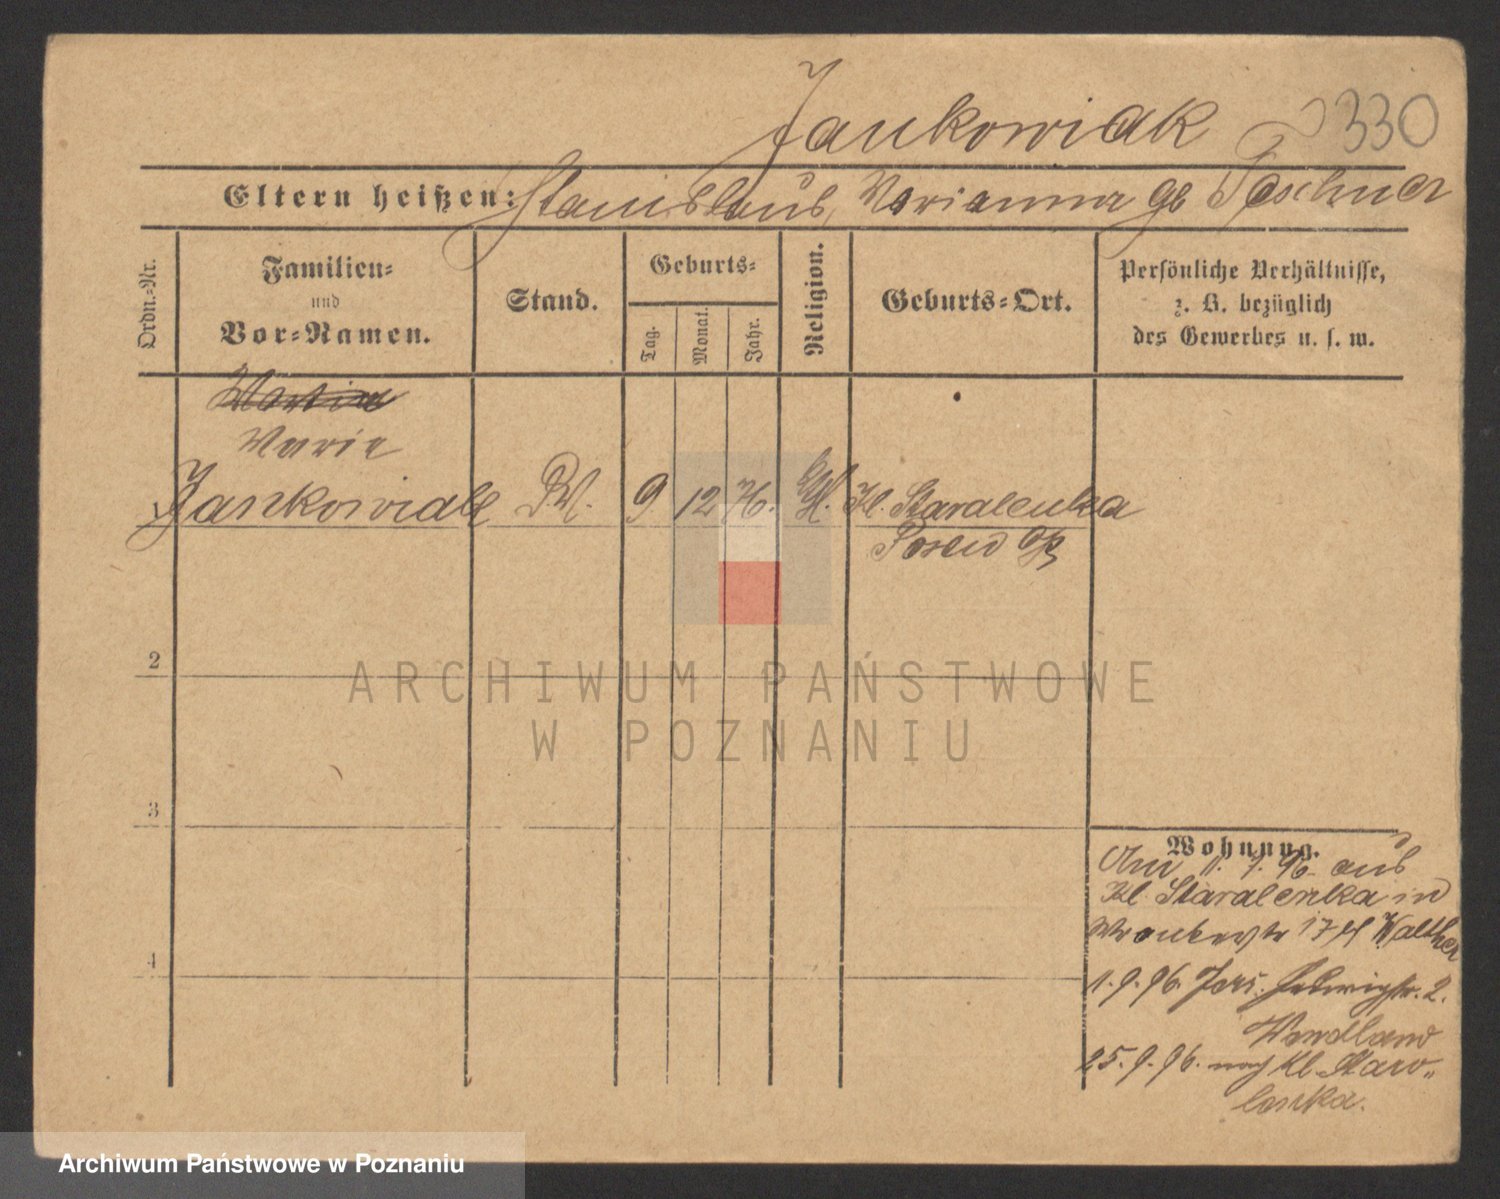 Jankowiak 330
Eltern heißen: Stanislaus, Marianna gb Teschner
Ordn.-Nr.
Familien-
und
Vor-Namen.
Stand.
Geburts-
Tag.
Monat.
Jahr.
Religion.
Geburts-Ort.
Persönliche Verhältnisse,
z. B. bezüglich
des Gewerbes u. s. w.
Marie
Jankowiak 9 12 76. Kl. Staralenka
Posen
2
3
4
Wohnung.
Am 11. 7. 96 aus
Kl. Staralenka in
17 Walther
1.9.96. Hedwigstr. 2.
Wendland
25.9.96. nach Kl. Staro-
lenka.
ARCHIWUM PAŃSTWOWE
W POZNANIU
Archiwum Państwowe w Poznaniu